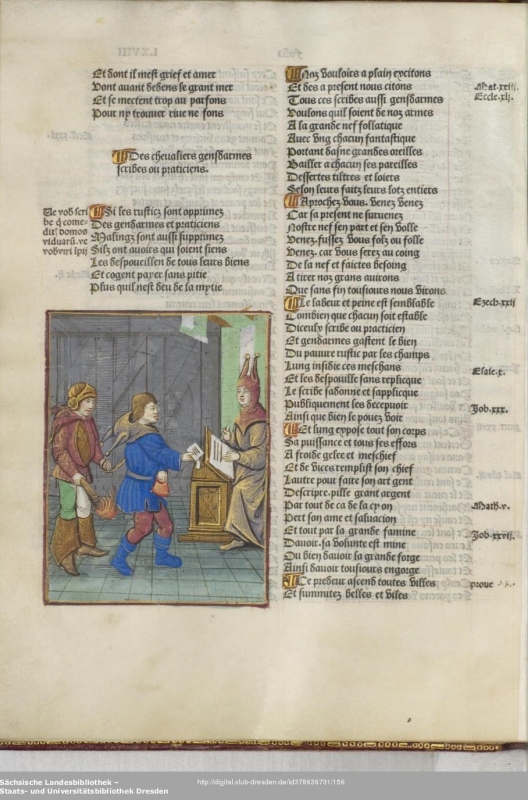 Et dont il mest grief et amer
Vont auant dedens le grant mer
Et se mectent trop au parfons
Pour ny trouuer riue ne fons
Des cheualiers gensdarmes
scribes ou praticiens.
Ve vob scri
be q come-
dit domos
viduarū. ve
vobviri ipii
Si les rusticz sont opprimez
Des gendarmes et praticiens
Malingz sont aussi supprimez
Silz ont auoirs qui soient siens
Les despouillen de tous leurs biens
Et cogent payer sans pitie
Plus quil nest deu de la mytie
Noz vouloirs a plain excitons
Et des a present nous citons
Tous ces scribes aussi gensdarmes
Voulons quil soient de noz armes
A la grande nef follatique
Auec vng chacun fantastique
Portant dasne grandes oreilles
Bailler a chacun ses pareilles
Dessertes tiltres et loiers
Selon leurs faitz leurs lotz entiers
Mat. xxiij.
Eccle. xlj.
Aprochez vous. venez venez
Car sa present ne suruenez
Nostre nef sen part et sen volle
Venez. fussez vous folz ou folle
Venez. car vous serez au coing
De la nef et faictes besoing
A tirer noz grans auirons
Que sans fin tousiours nous virons
Le labeur et peine est semblable
Combien que chacun soit estable
Diceulx scribe ou practicien
Et gendarmes gastent le bien
Du pauure rustic par les champs
Lung insidie ces meschans
Et les despouille sans replicque
Le scribe sadonne et sapplicque
Publiquement les decepuoir
Ainsi que bien le pouez voir
Ezech. xxij
Esaie. x.
Job. xxx.
Et lung expose tout son corps
Sa puissance et tous ses effors
A froide gelee et meschief
Et de vices remplist son chief
Lautre pour faire son art gent
Descripre. pille grant argent
Par tout de ca de la cy on
Pert son ame et saluacion
Et tout par la grande famine
Dauoir. sa volunte est mine
Ou bien dauoir la grande forge
Ainsi dauoir tousiours engorge
Math. v.
Job. xxvij.
Ce predeur ascend toutes villes
Et summitez belles et viles
proue
Sächsische Landesbibliothek –
Staats- und Universitätsbibliothek Dresden
http://digital.slub-dresden.de/id378636731/156